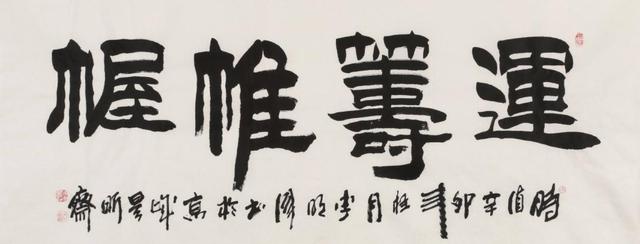 運籌帷幄
時值辛卯年桂月李明濬書於京城景昕齋